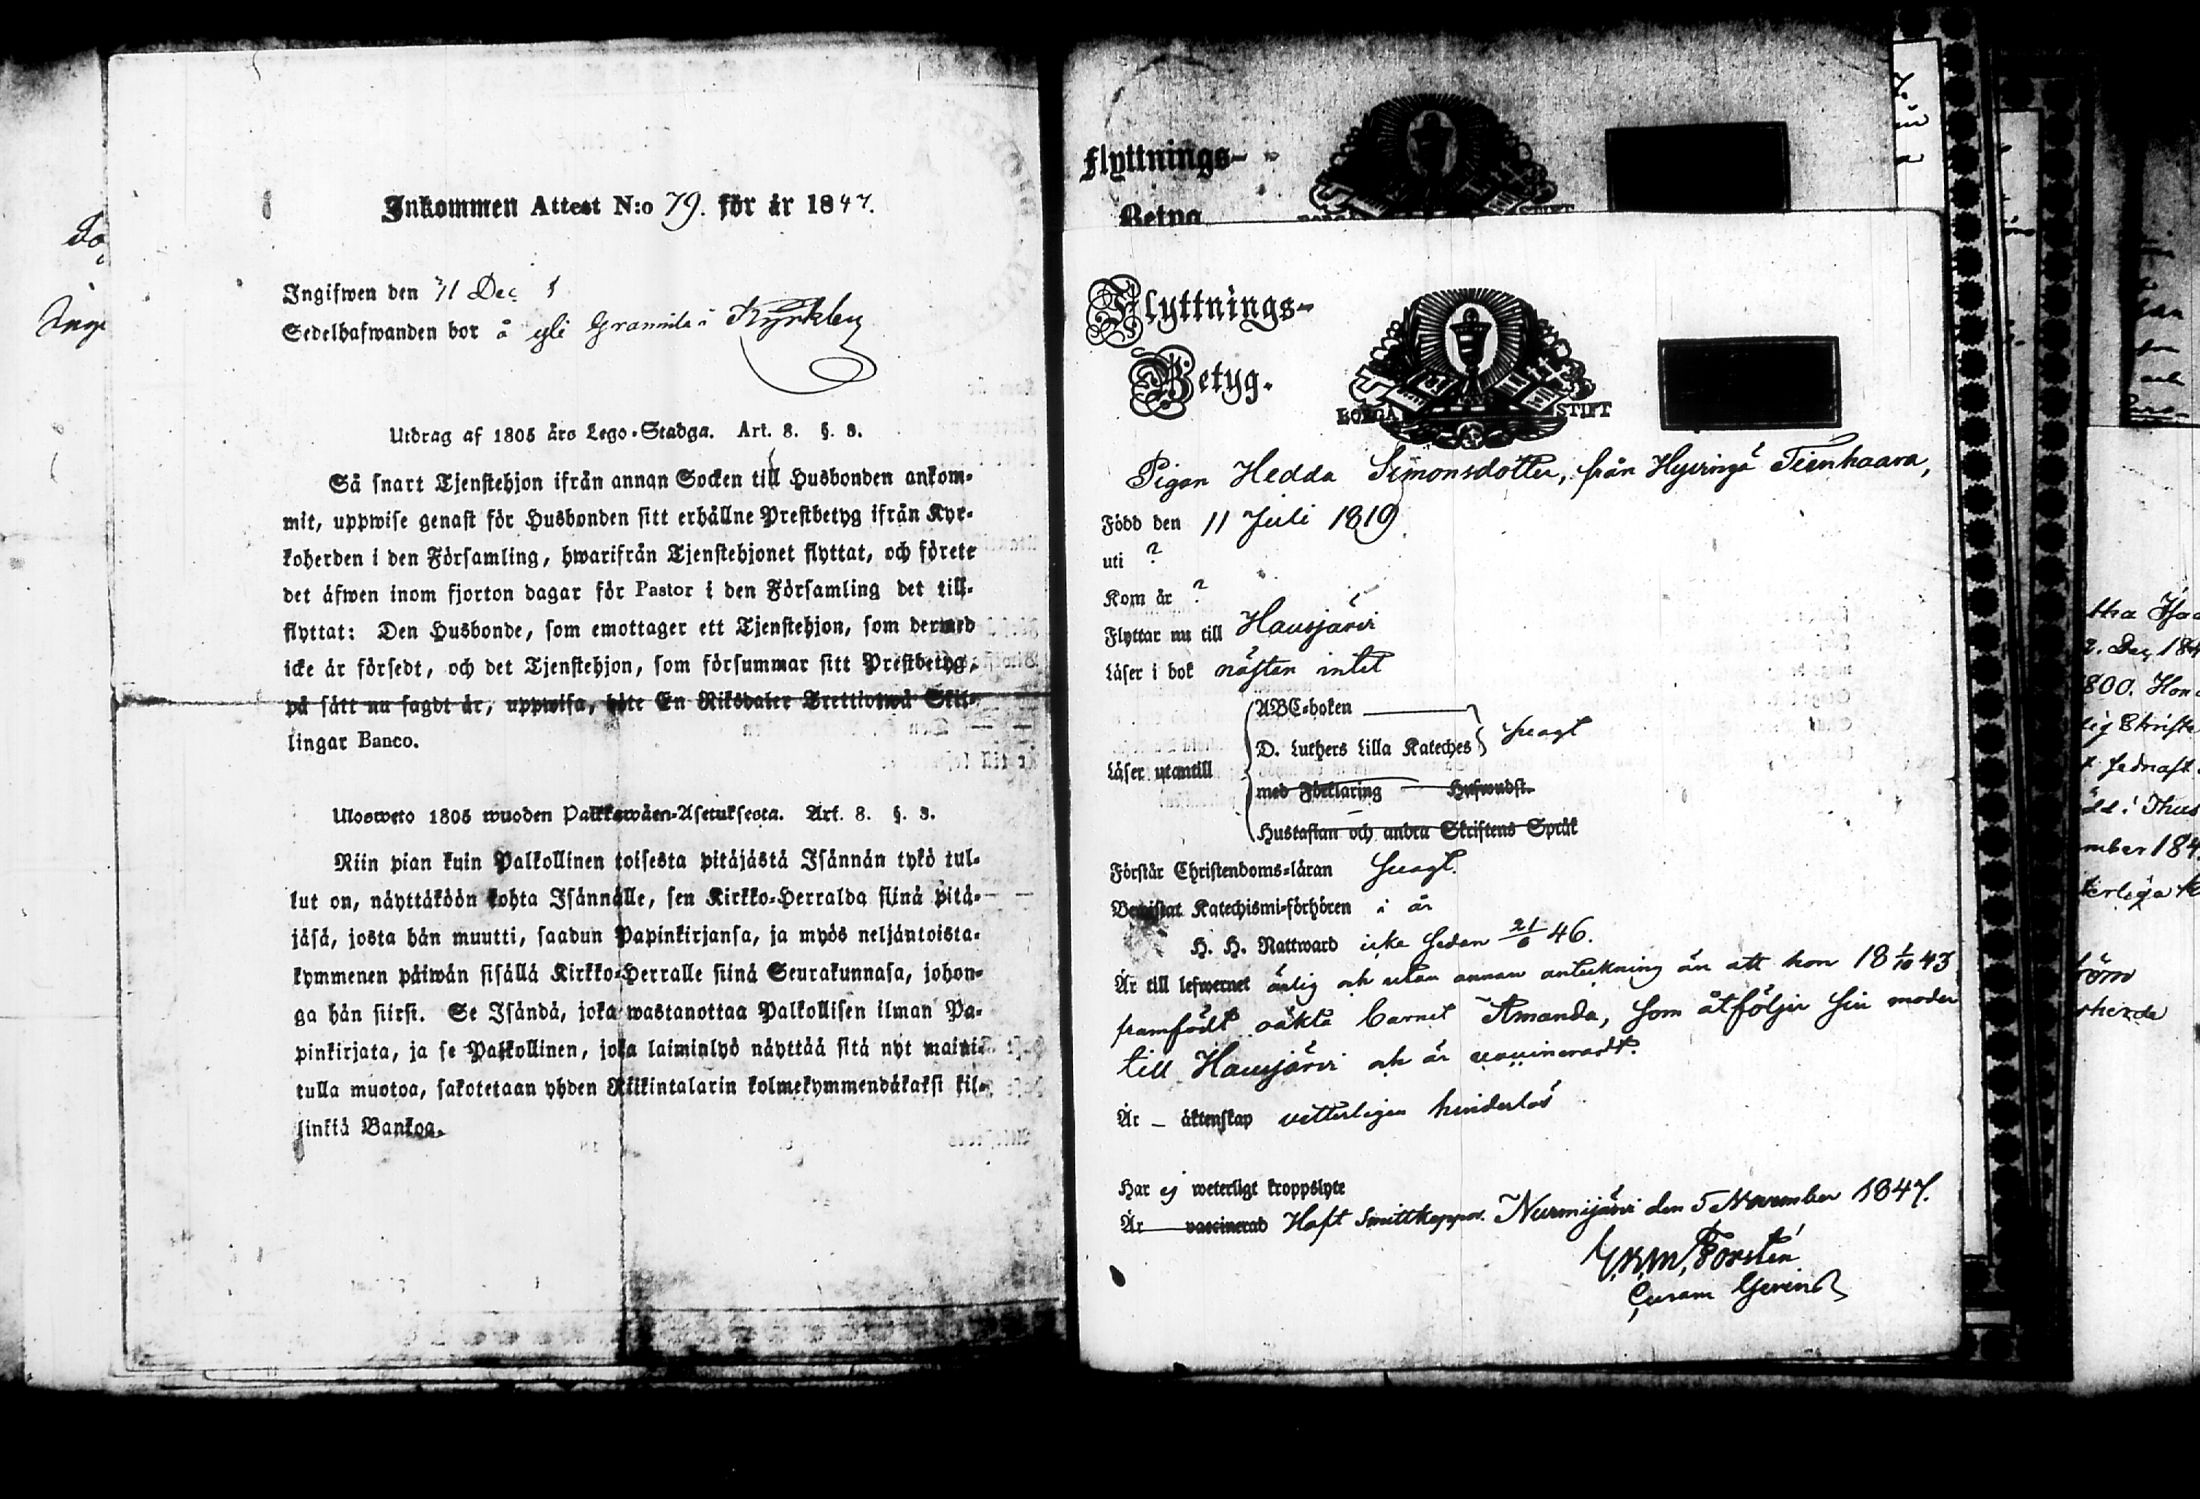 Inkommen Attest N:o 79. för år 1847.
Ingifwen den 31 Dec
Sedelhafwanden bor å Yli Grannila i Kyrkby
Utdrag af 1805 års Lego-Stadga. Art. 8. §. 3.
Så snart Tjenstehjon ifrån annan Socken till Husbonden ankom-
mit, uppwise genast för Husbonden sitt erhållne Prestbetyg ifrån Kyr-
koherden i den Församling, hwarifrån Tjenstehjonet flyttat, och förete
det äfwen inom fjorton dagar för Pastor i den Församling det till-
flyttat: Den Husbonde, som emottager ett Tjenstehjon, som dermed
icke är försedt, och det Tjenstehjon, som försummar sitt Prestbetyg,
på sätt nu sagdt är, uppwisa, böte En Riksdaler Trettiotwå Skil-
lingar Banco.
Ulosweto 1805 wuoden Palkkawäen-Asetuksesta. Art. 8. §. 3.
Niin pian kuin Palkollinen toisesta pitäjästä Isännän tykö tul-
lut on, näyttäköön kohta Isännälle, sen Kirkko-Herralda siinä pitä-
jäsä, josta hän muutti, saadun Papinkirjansa, ja myös neljäntoista-
kymmenen päiwän sisällä Kirkko-Herralle siinä Seurakunnasa, johon-
ga hän siirsi. Se Isändä, joka wastanottaa Palkollisen ilman Pa-
pinkirjata, ja se Palkollinen, joka laiminlyö näyttää sitä nyt maini-
tulla muotoa, sakotetaan yhden Riikintalarin kolmekymmendäkaksi kil-
linkiä Bankoa.
Flyttnings-
Flyttnings-
Betyg.
BORGÅ STIFT
Pigan Hedda Simonsdotter, från Hyvinge Tienhaara,
Född den 11 Juli 1819
uti ?
Kom år ?
Flyttar nu till Hausjärvi
Läser i bok nästan intet
Läser utantill
ABC-boken
D. Luthers Lilla Kateches svagt
med Förklaring Hufwudst.
Hustaflan och andra Skriftens Språk
Förstår Christendoms-läran svagt.
Bewistat Katechismi-förhören i år
H. H. Nattward icke sedan 21/6 46.
Är till lefwernet ärlig och utan annan anteckning än att hon 18 1/10 43
framfödt oäkta barnet Amanda, som åtföljer sin moder
till Hausjärvi och är ovaccineradt.
Är – äktenskap vetterligen hinderlös
Har ej weterligt kroppslyte
Är vaccinerad Haft Smittkoppor. Nurmijärvi den 5 November 1847.
Forstén